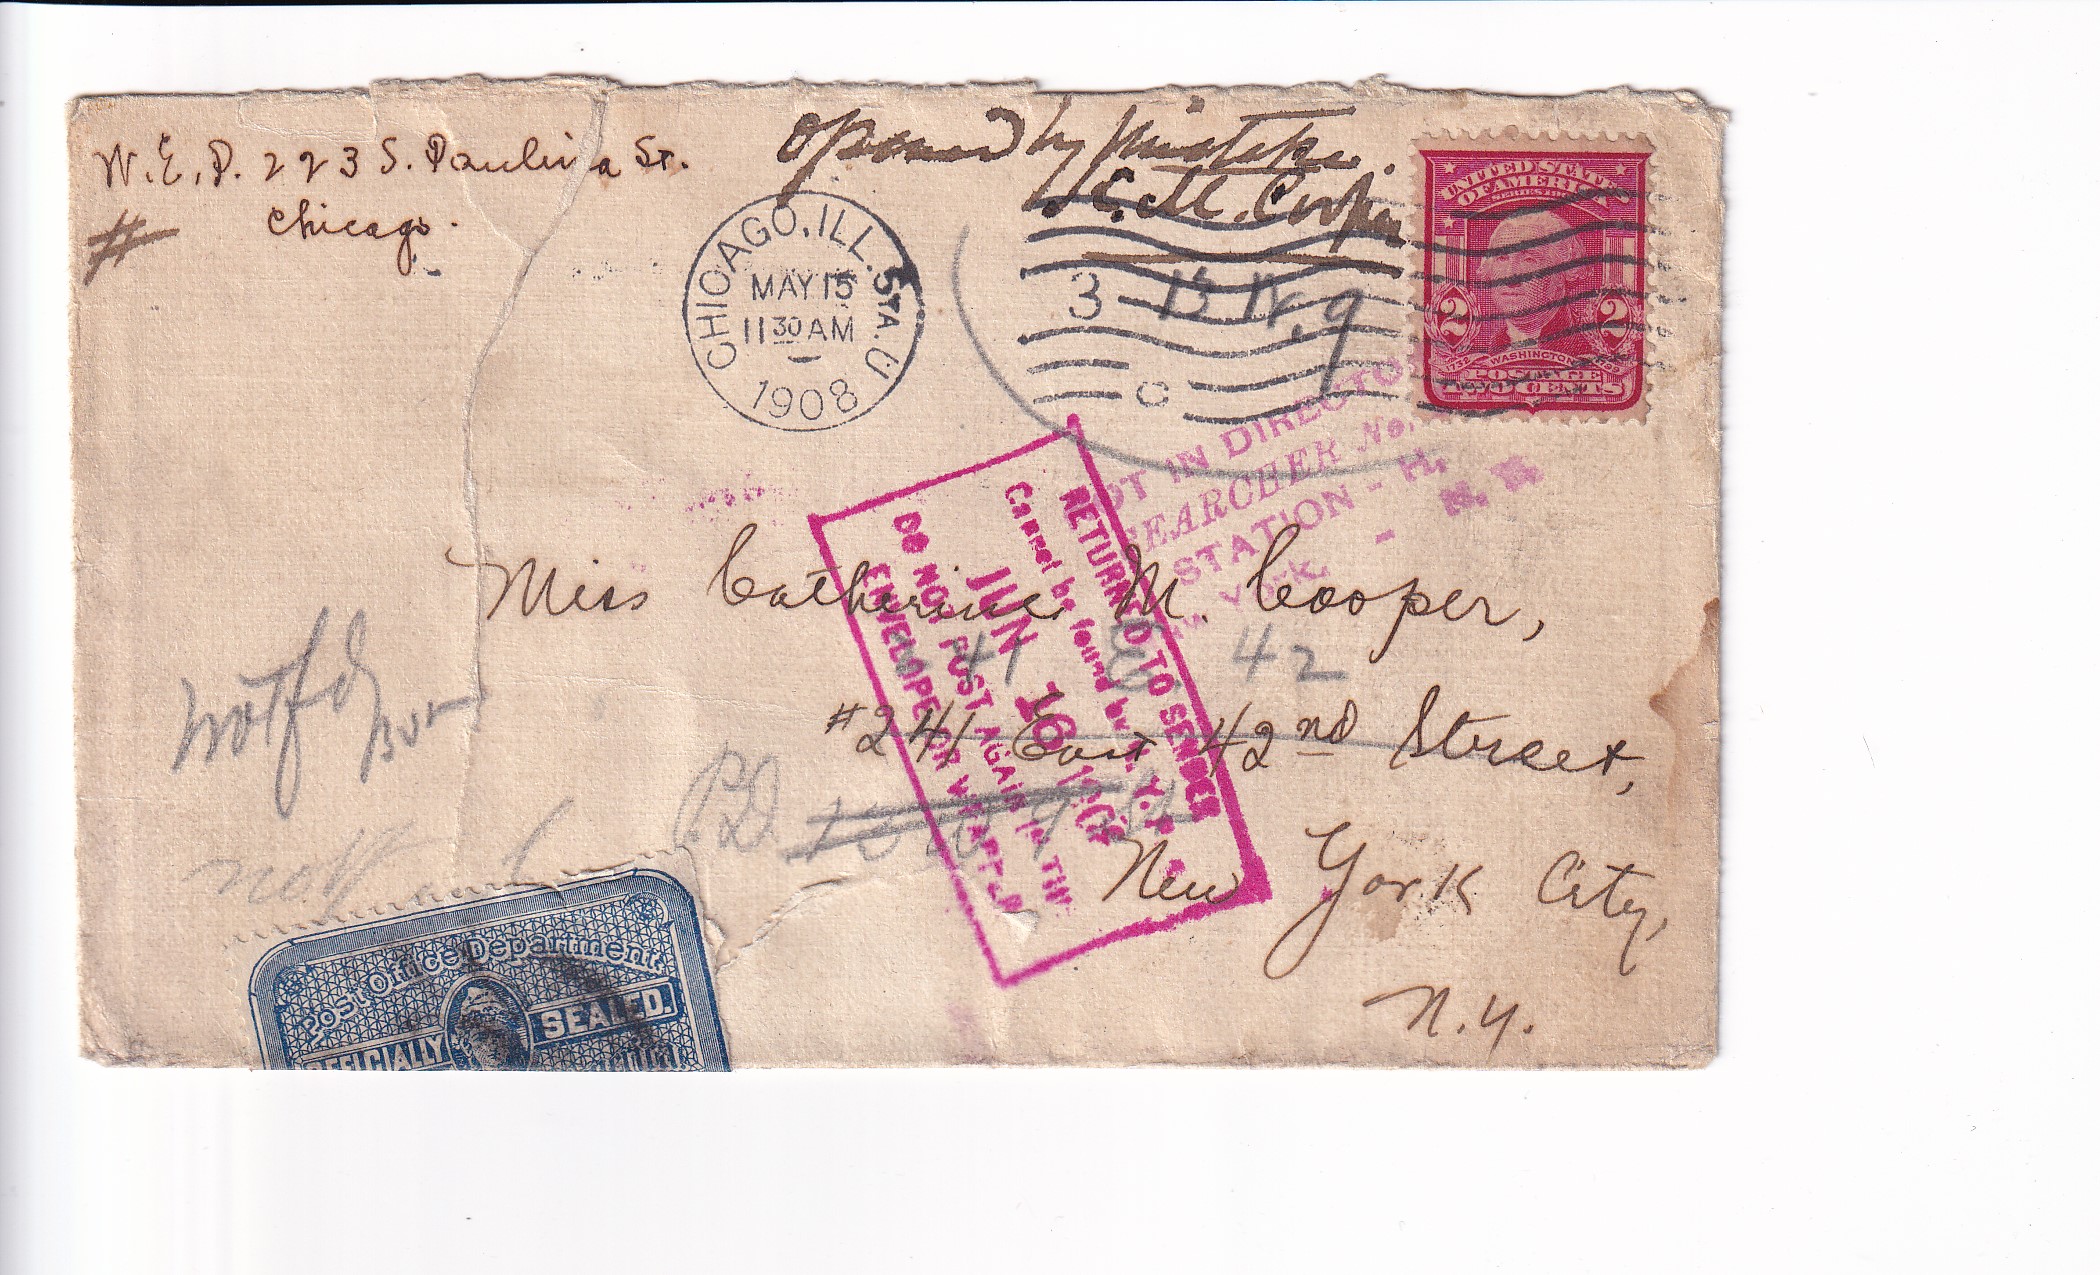 W.E.P. 223 S. Paulina St.
Chicago.
#
Opened by mistake.
C. M. Cooper
CHICAGO, ILL. STA. U
MAY 15
11 30 AM
1908
3
C
UNITED STATES
OF AMERICA
2 2
1732 WASHINGTON 1799
POSTAGE
TWO CENTS
NOT IN DIRECTO
SEARCHER No.
STATION - H.
York.
RETURNED TO SENDER
Cannot be found
JUN 16
DO NOT POST AGAIN IN THI
ENVELOPE OR WRAPPER
Miss Catherine M. Cooper,
41 E 42
#241 East 42nd Street,
New York City,
N.Y.
not f d
P.D.
not f
Post Office Department.
OFFICIALLY SEALED.